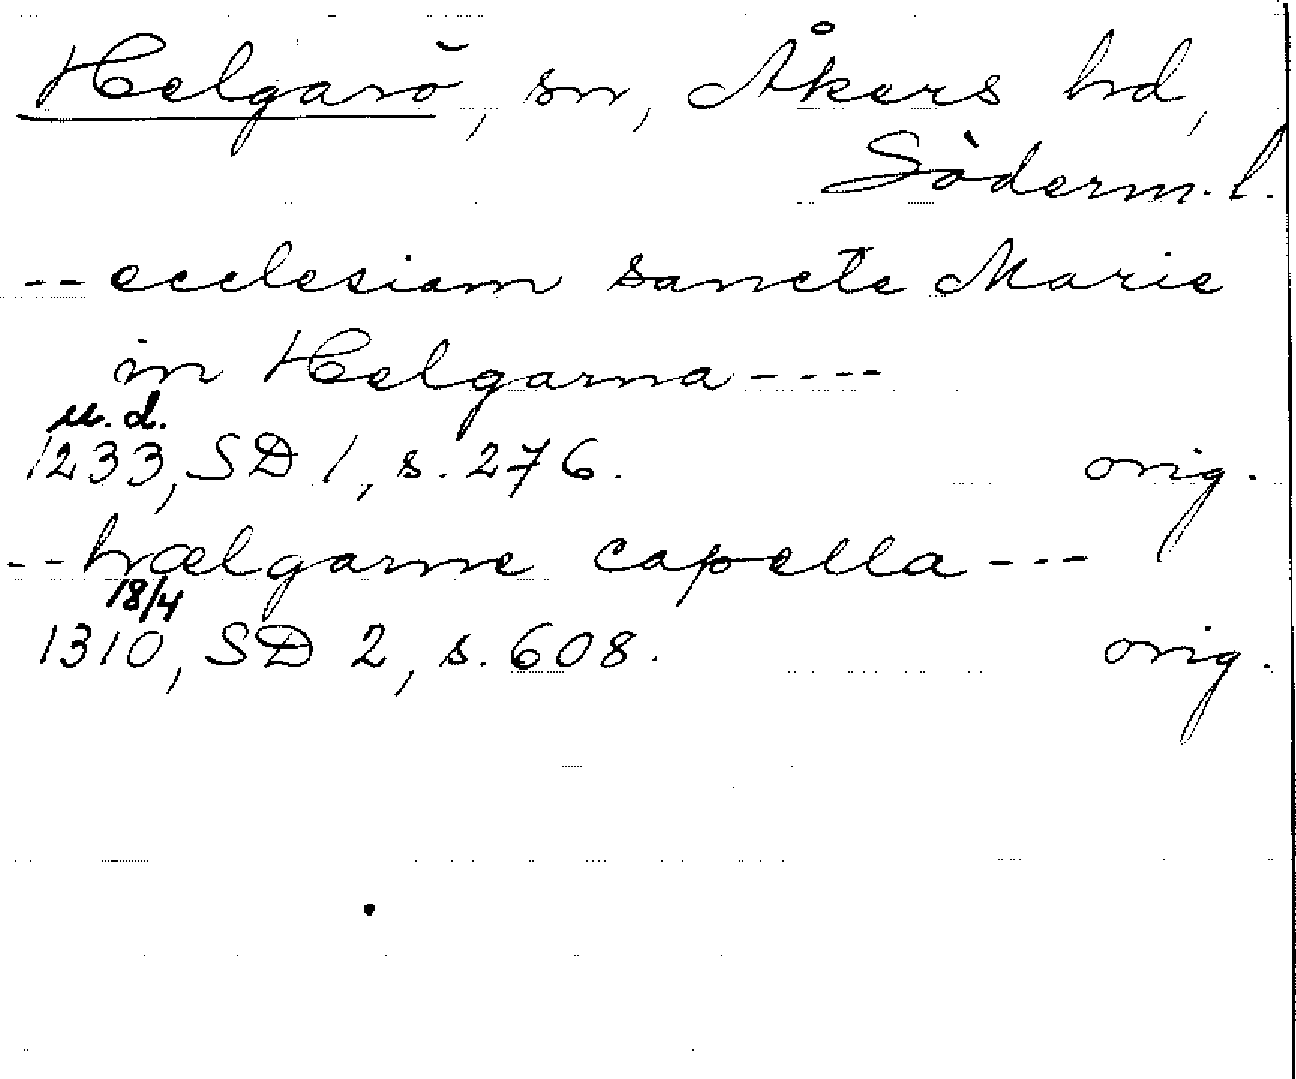 Helgarö, sn, Åkers hd,
Söderm. l.
-- ecclesiam sancte Marie
in Helgarna ----
u.d.
1233, SD 1, s. 276. orig.
-- hælgarne capella ---
18/4
1310, SD 2, s. 608. orig.